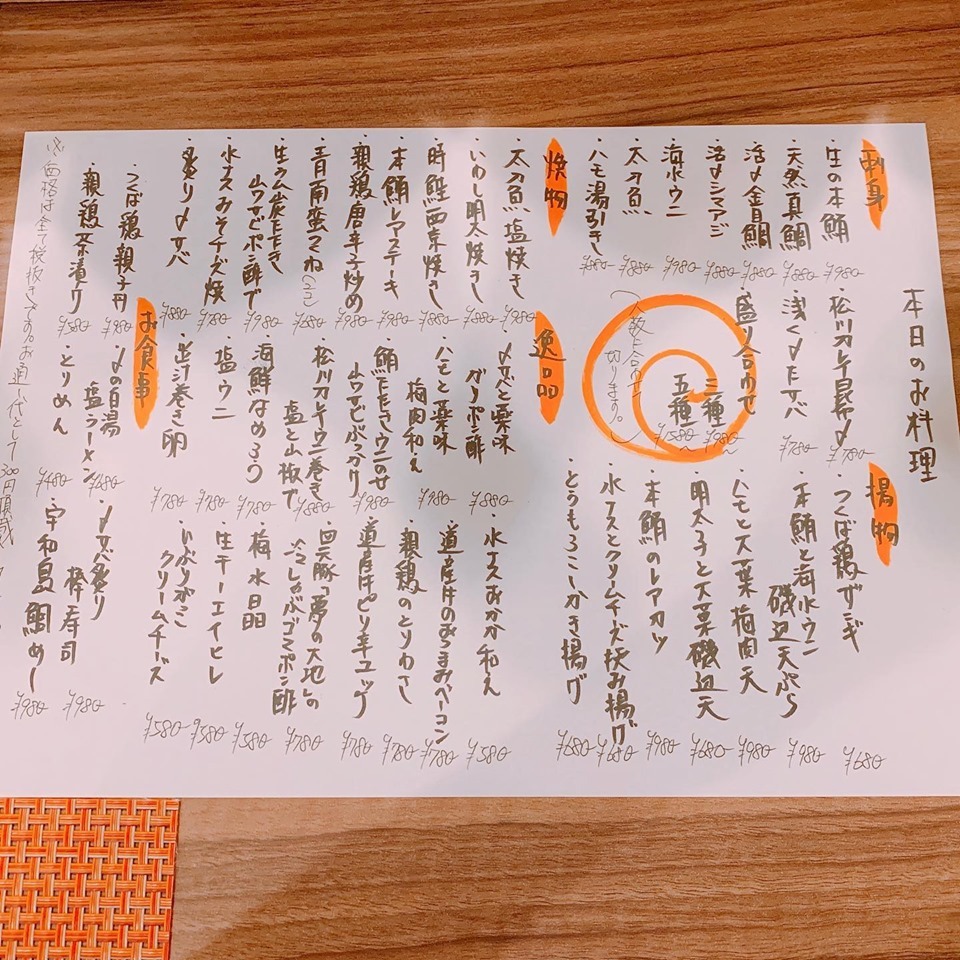 本日のお料理
刺身
・生の本鮪 ¥980
・天然真鯛 ¥880
・活〆金目鯛 ¥880
・活〆シマアジ ¥880
・海水ウニ ¥980
・太刀魚 ¥880
・ハモ湯引き ¥880
・松川カレイ昆布〆 ¥780
・浅く〆たサバ ¥780
盛り合わせ
三種 ¥980~
五種 ¥1580~
(人数に合わせて
切ります。)
揚物
・つくば鶏ザンギ ¥680
・本鮪と海水ウニ
磯辺天ぷら ¥980
・ハモと大葉梅肉天 ¥980
・明太子と大葉磯辺天 ¥680
・本鮪のレアカツ ¥980
・水ナスとクリームチーズ挟み揚げ ¥680
・とうもろこしかき揚げ ¥680
焼物
・太刀魚塩焼き ¥980
・いわし明太焼き ¥880
・時鮭西京焼き ¥880
・本鮪レアステーキ ¥980
・親鶏唐辛子炒め ¥980
・青南蛮つくね(二コ) ¥680
・生ラム炭たたき
山ワサビポン酢で ¥980
・水ナスみそチーズ焼 ¥780
・炙り〆サバ ¥880
逸品
・〆サバと薬味
ガリポン酢 ¥880
・ハモと薬味
梅肉和え ¥980
・鮪たたきウニのせ
山ワサビぶっかけ ¥980
・松川カレイウニ巻き
塩と山椒で ¥880
・海鮮なめろう ¥780
・塩ウニ ¥780
・出汁巻き卵 ¥780
・水ナスおかか和え ¥580
・道産豚のおつまみベーコン ¥780
・親鶏のとりわさ ¥780
・道産豚ピリ辛ユッケ ¥780
・四元豚「夢の大地」の
冷しゃぶゴマポン酢 ¥780
・梅水晶 ¥580
・生チーエイヒレ ¥580
・いぶりがっこ
クリームチーズ ¥580
お食事
・つくば鶏親子丼 ¥980
・親鶏茶漬け ¥580
・〆の白湯
塩ラーメン ¥680
・とりめん ¥480
・〆サバ炙り
棒寿司 ¥980
・宇和島鯛めし ¥980
※価格は全て税抜きです。お通し代として300円頂戴